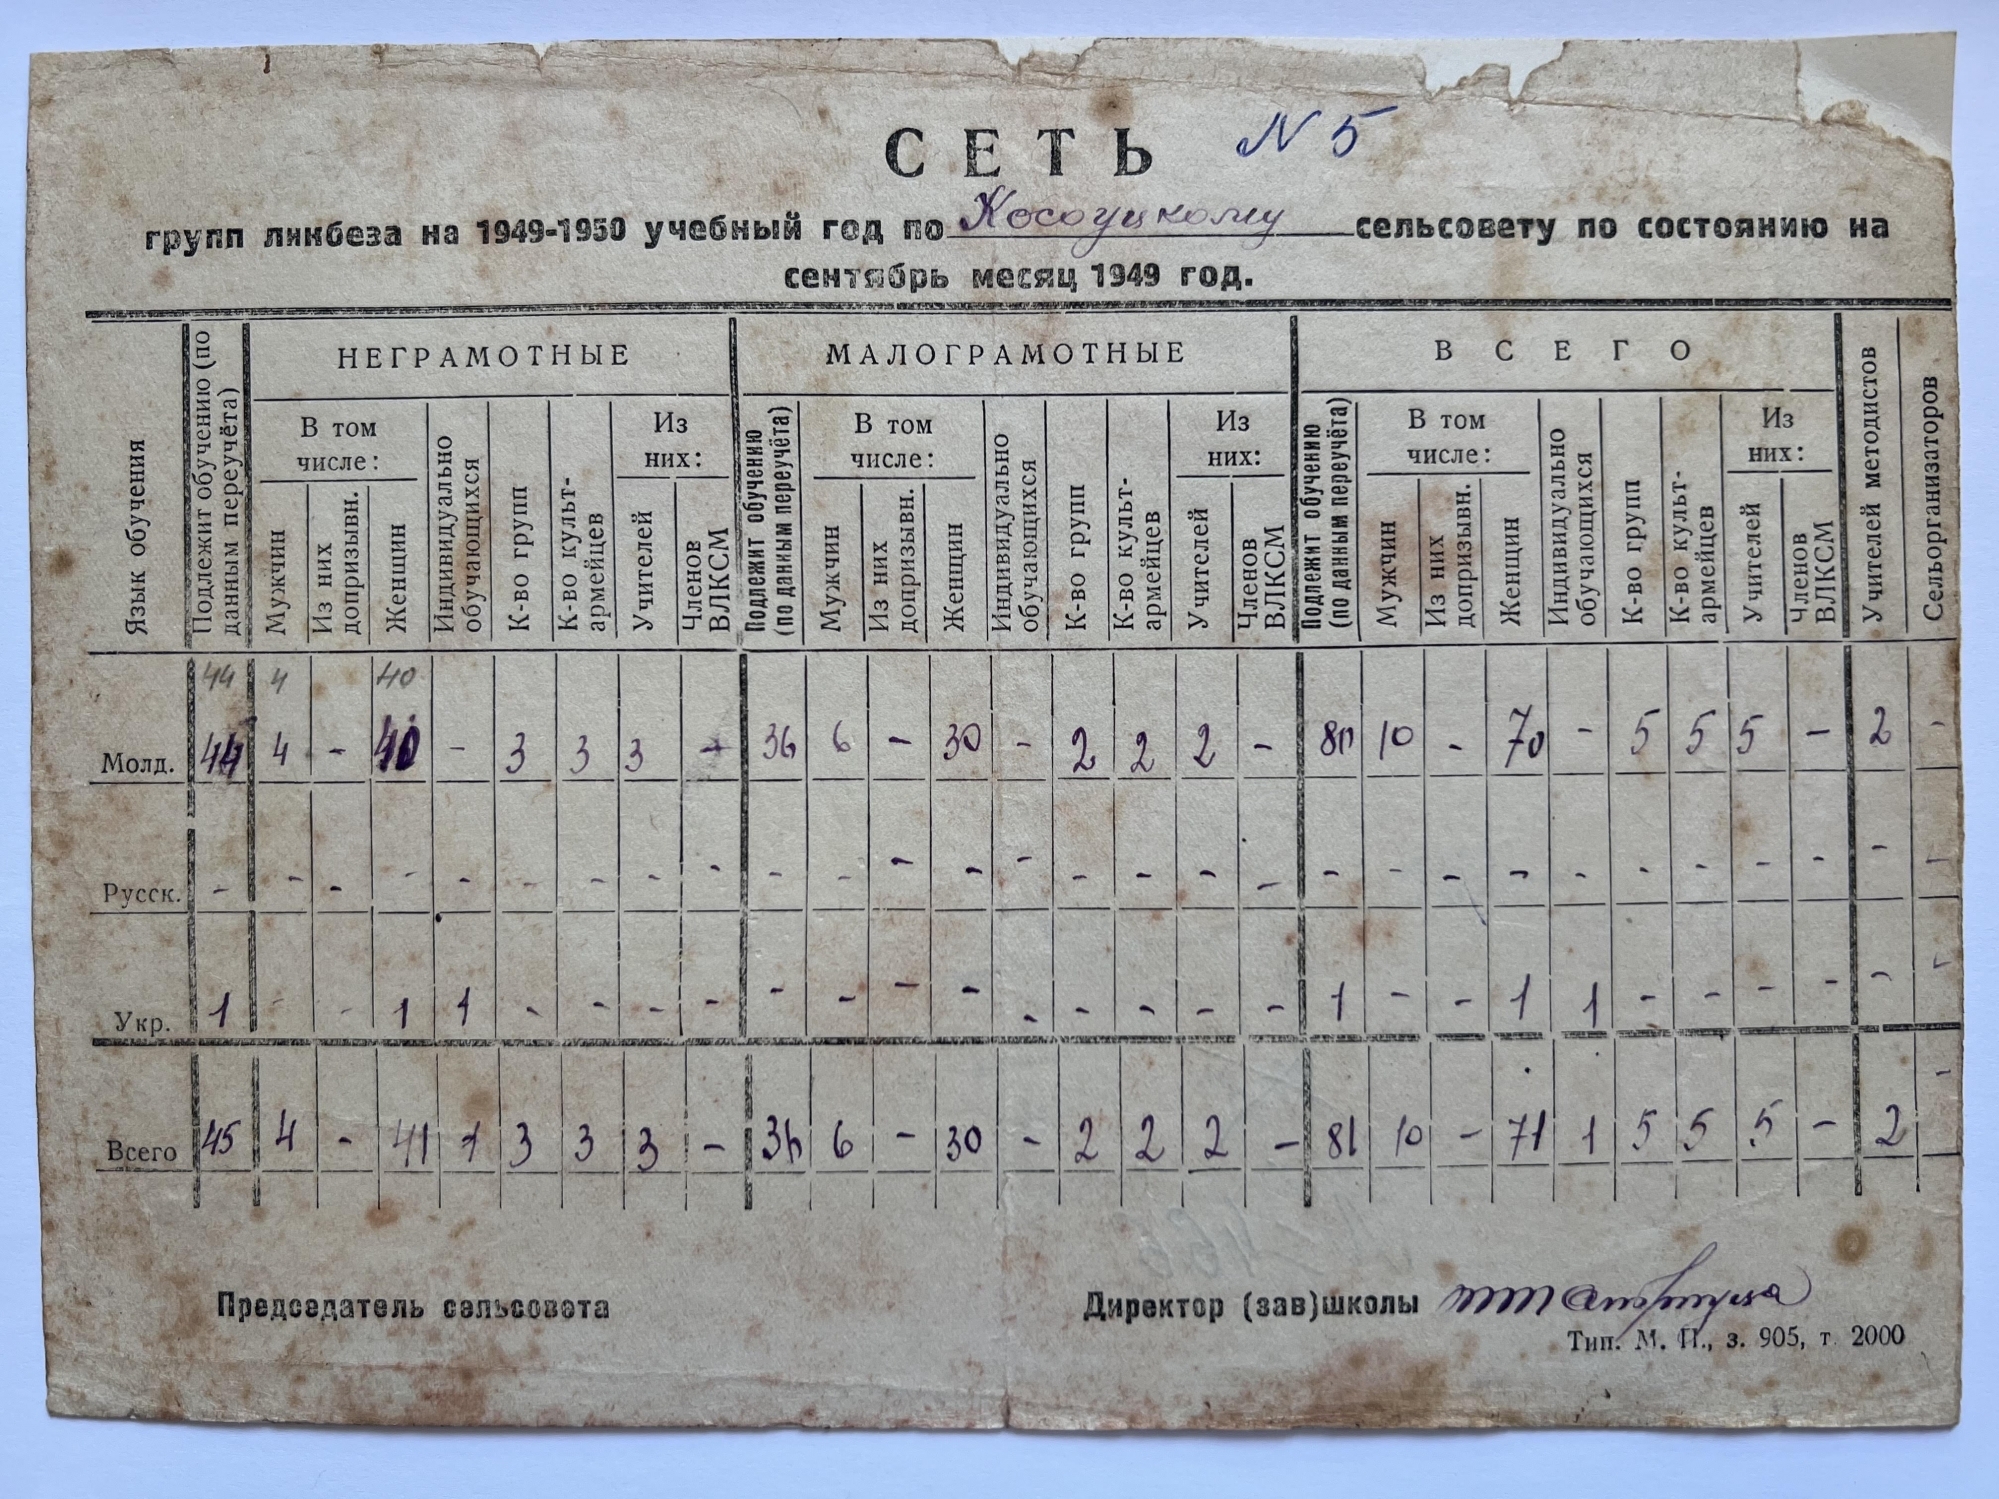 СЕТЬ N 5
групп ликбеза на 1949-1950 учебный год по Косоуцкому сельсовету по состоянию на
сентябрь месяц 1949 год.
Язык обучения
Подлежит обучению (по данным переучёта)
НЕГРАМОТНЫЕ
В том числе:
Мужчин
Из них допризывн.
Женщин
Индивидуально обучающихся
К-во групп
К-во культ-армейцев
Из них:
Учителей
Членов ВЛКСМ
МАЛОГРАМОТНЫЕ
Подлежит обучению (по данным переучёта)
В том числе:
Мужчин
Из них допризывн.
Женщин
Индивидуально обучающихся
К-во групп
К-во культ-армейцев
Из них:
Учителей
Членов ВЛКСМ
ВСЕГО
Подлежит обучению (по данным переучёта)
В том числе:
Мужчин
Из них допризывн.
Женщин
Индивидуально обучающихся
К-во групп
К-во культ-армейцев
Из них:
Учителей
Членов ВЛКСМ
Учителей методистов
Сельорганизаторов
44 4 40
Молд. 44 4 - 40 - 3 3 3 - 36 6 - 30 - 2 2 2 - 80 10 - 70 - 5 5 5 - 2 -
Русск. - - - - - - - - - - - - - - - - - - - - - - - - - - - - -
Укр. 1 - - 1 1 - - - - - - - - - - - - - 1 - - 1 1 - - - - - -
Всего 45 4 - 41 1 3 3 3 - 36 6 - 30 - 2 2 2 - 81 10 - 71 1 5 5 5 - 2 -
Председатель сельсовета
Директор (зав)школы
Тип. М. П., з. 905, т. 2000